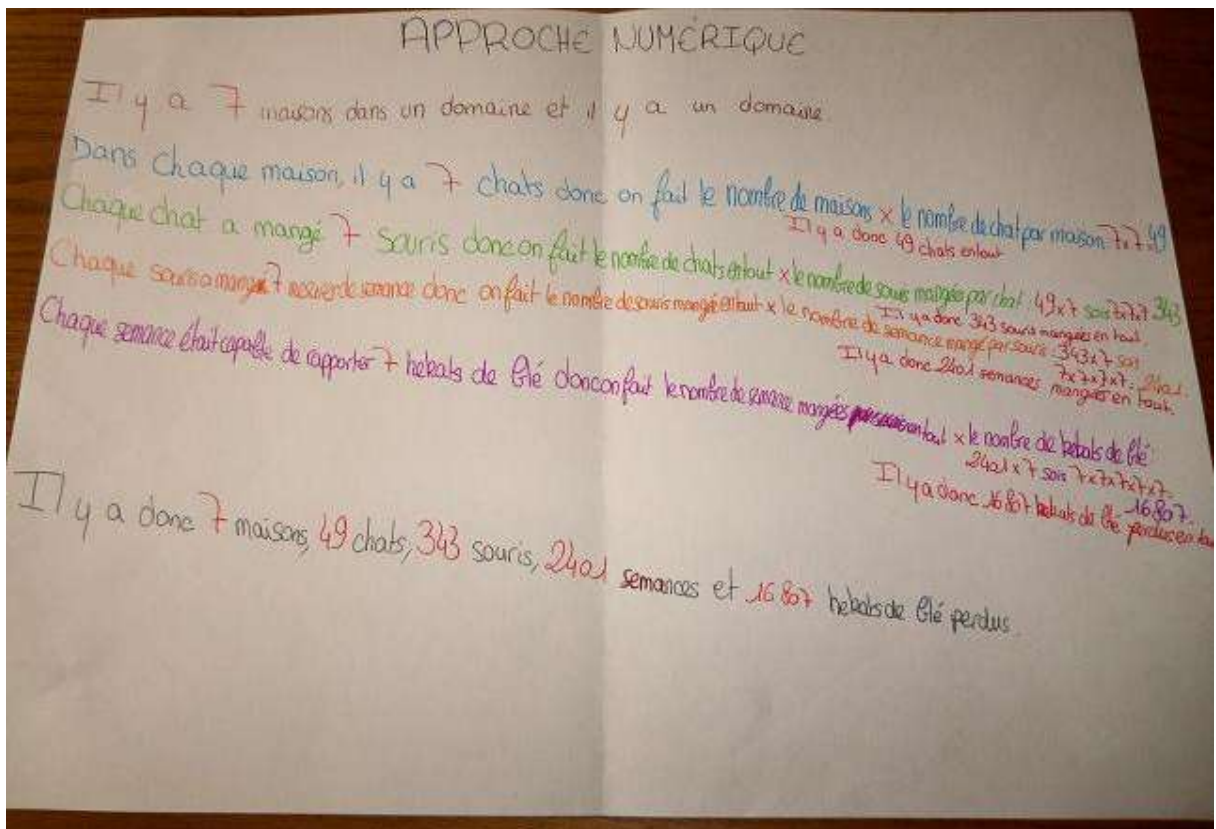 APPROCHE NUMÉRIQUE
Il y a 7 maisons dans un domaine et il y a un domaine.
Dans chaque maison, il y a 7 chats donc on fait le nombre de maisons x le nombre de chat par maison 7x7=49
Il y a donc 49 chats entout
Chaque chat a mangé 7 souris donc on fait le nombre de chats entout x le nombre de souris mangées par chat. 49x7 sois 7x7x7 343
Il y a donc 343 souris mangées en tout.
Chaque souris a mangé 7 de semance donc on fait le nombre de souris mangé entout x le nombre de semance mangé par souris. 343x7 sois
7x7x7x7 = 2401.
Il y a donc 2401 semances mangées en tout.
Chaque semance était capable de rapporter 7 hekats de blé donc on fait le nombre de semance mangées entout x le nombre de hekats de blé:
2401x7 sois 7x7x7x7x7
16807.
Il y a donc 16807 hekats de blé perdus en tout
Il y a donc 7 maisons, 49 chats, 343 souris, 2401 semances et 16 807 hekats de blé perdus.